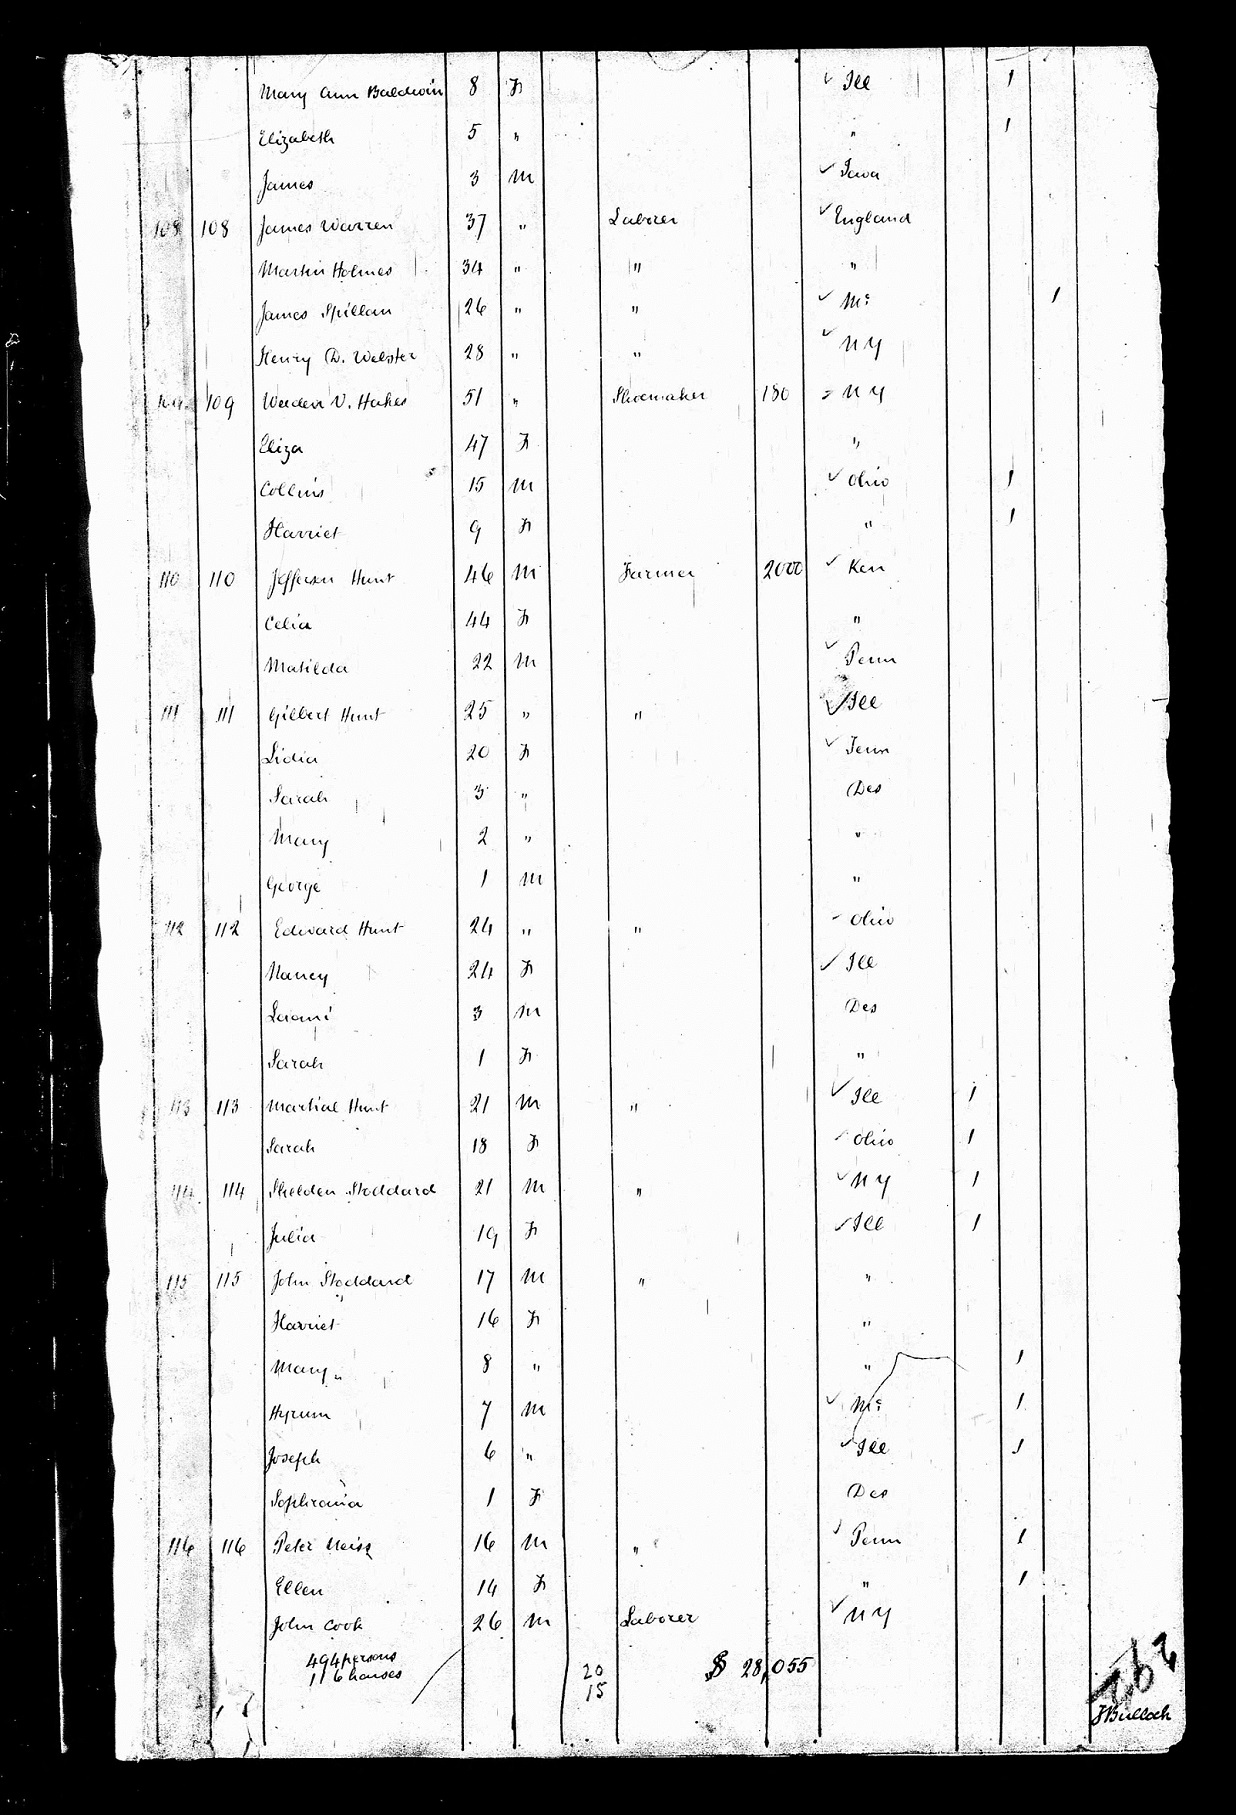 Mary Ann Baldwin 8 F Ill 1
Elizabeth 5 " " 1
James 3 M Iowa
108 108 James Warren 37 " Laborer England
Martin Holmes 34 " " "
James Spillan 26 " " Mo 1
Henry D. Webster 28 " " N Y
109 109 V. Hakes 51 " Shoemaker 180 N Y
Eliza 47 F "
Collins 15 M Ohio 1
Harriet 9 F " 1
110 110 Jefferson Hunt 46 M Farmer 2000 Ken
Celia 44 F "
Matilda 22 M Penn
111 111 Gilbert Hunt 25 " " Ill
Lidia 20 F Tenn
Sarah 3 " Des
Mary 2 " "
George 1 M "
112 112 Edward Hunt 24 " " Ohio
Nancy 24 F Ill
3 M Des
Sarah 1 F "
113 113 Martial Hunt 21 M " Ill 1
Sarah 18 F Ohio 1
114 114 Shelden Stoddard 21 M " N Y 1
Julia 19 F Ill 1
115 115 John Stoddard 17 M " "
Harriet 16 F "
Mary " 8 " " 1
Hyrum 7 M Mo 1
Joseph 6 " Ill 1
Sophronia 1 F Des
116 116 Peter 16 M " Penn 1
Ellen 14 F " 1
John Cook 26 M Laborer N Y
494 persons
116 houses
20
15
$ 28,055
J Bullock